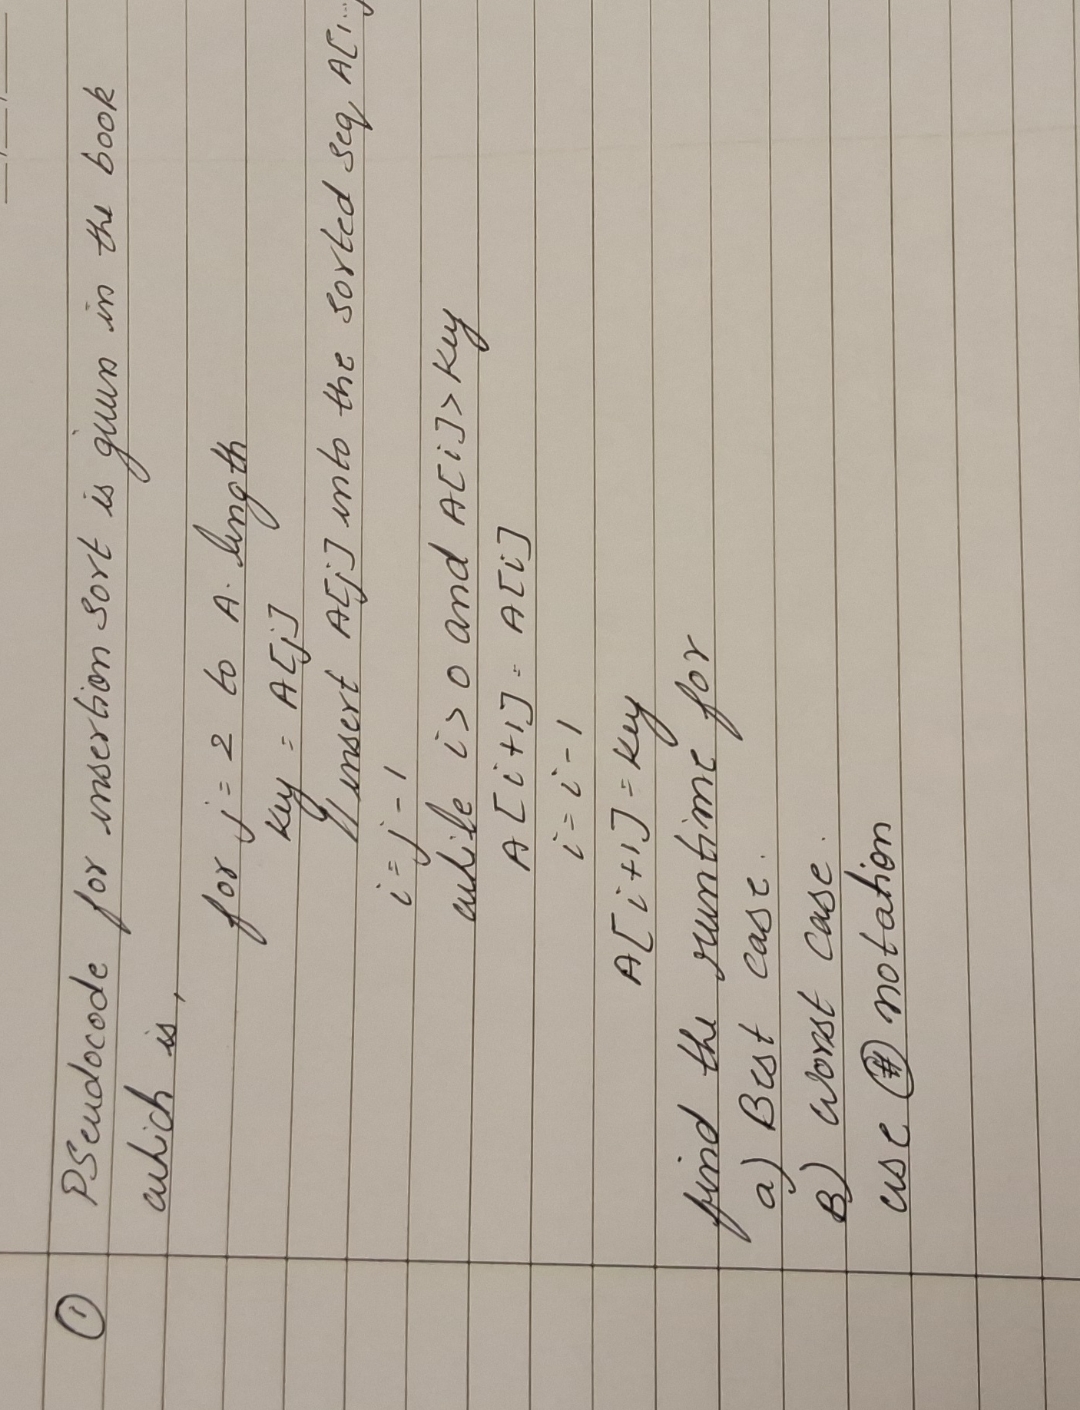 ① PSeudocode for insertion Sort is given in the book
which is,
for j = 2 to A. length
Key = A[j]
// insert A[j] into the sorted seq A[1..
i = j - 1
while i > 0 and A[i] > Key
A[i+1] = A[i]
i = i - 1
A[i+1] = Key
find the runtime for
a) Best case.
B) worst case.
use notation